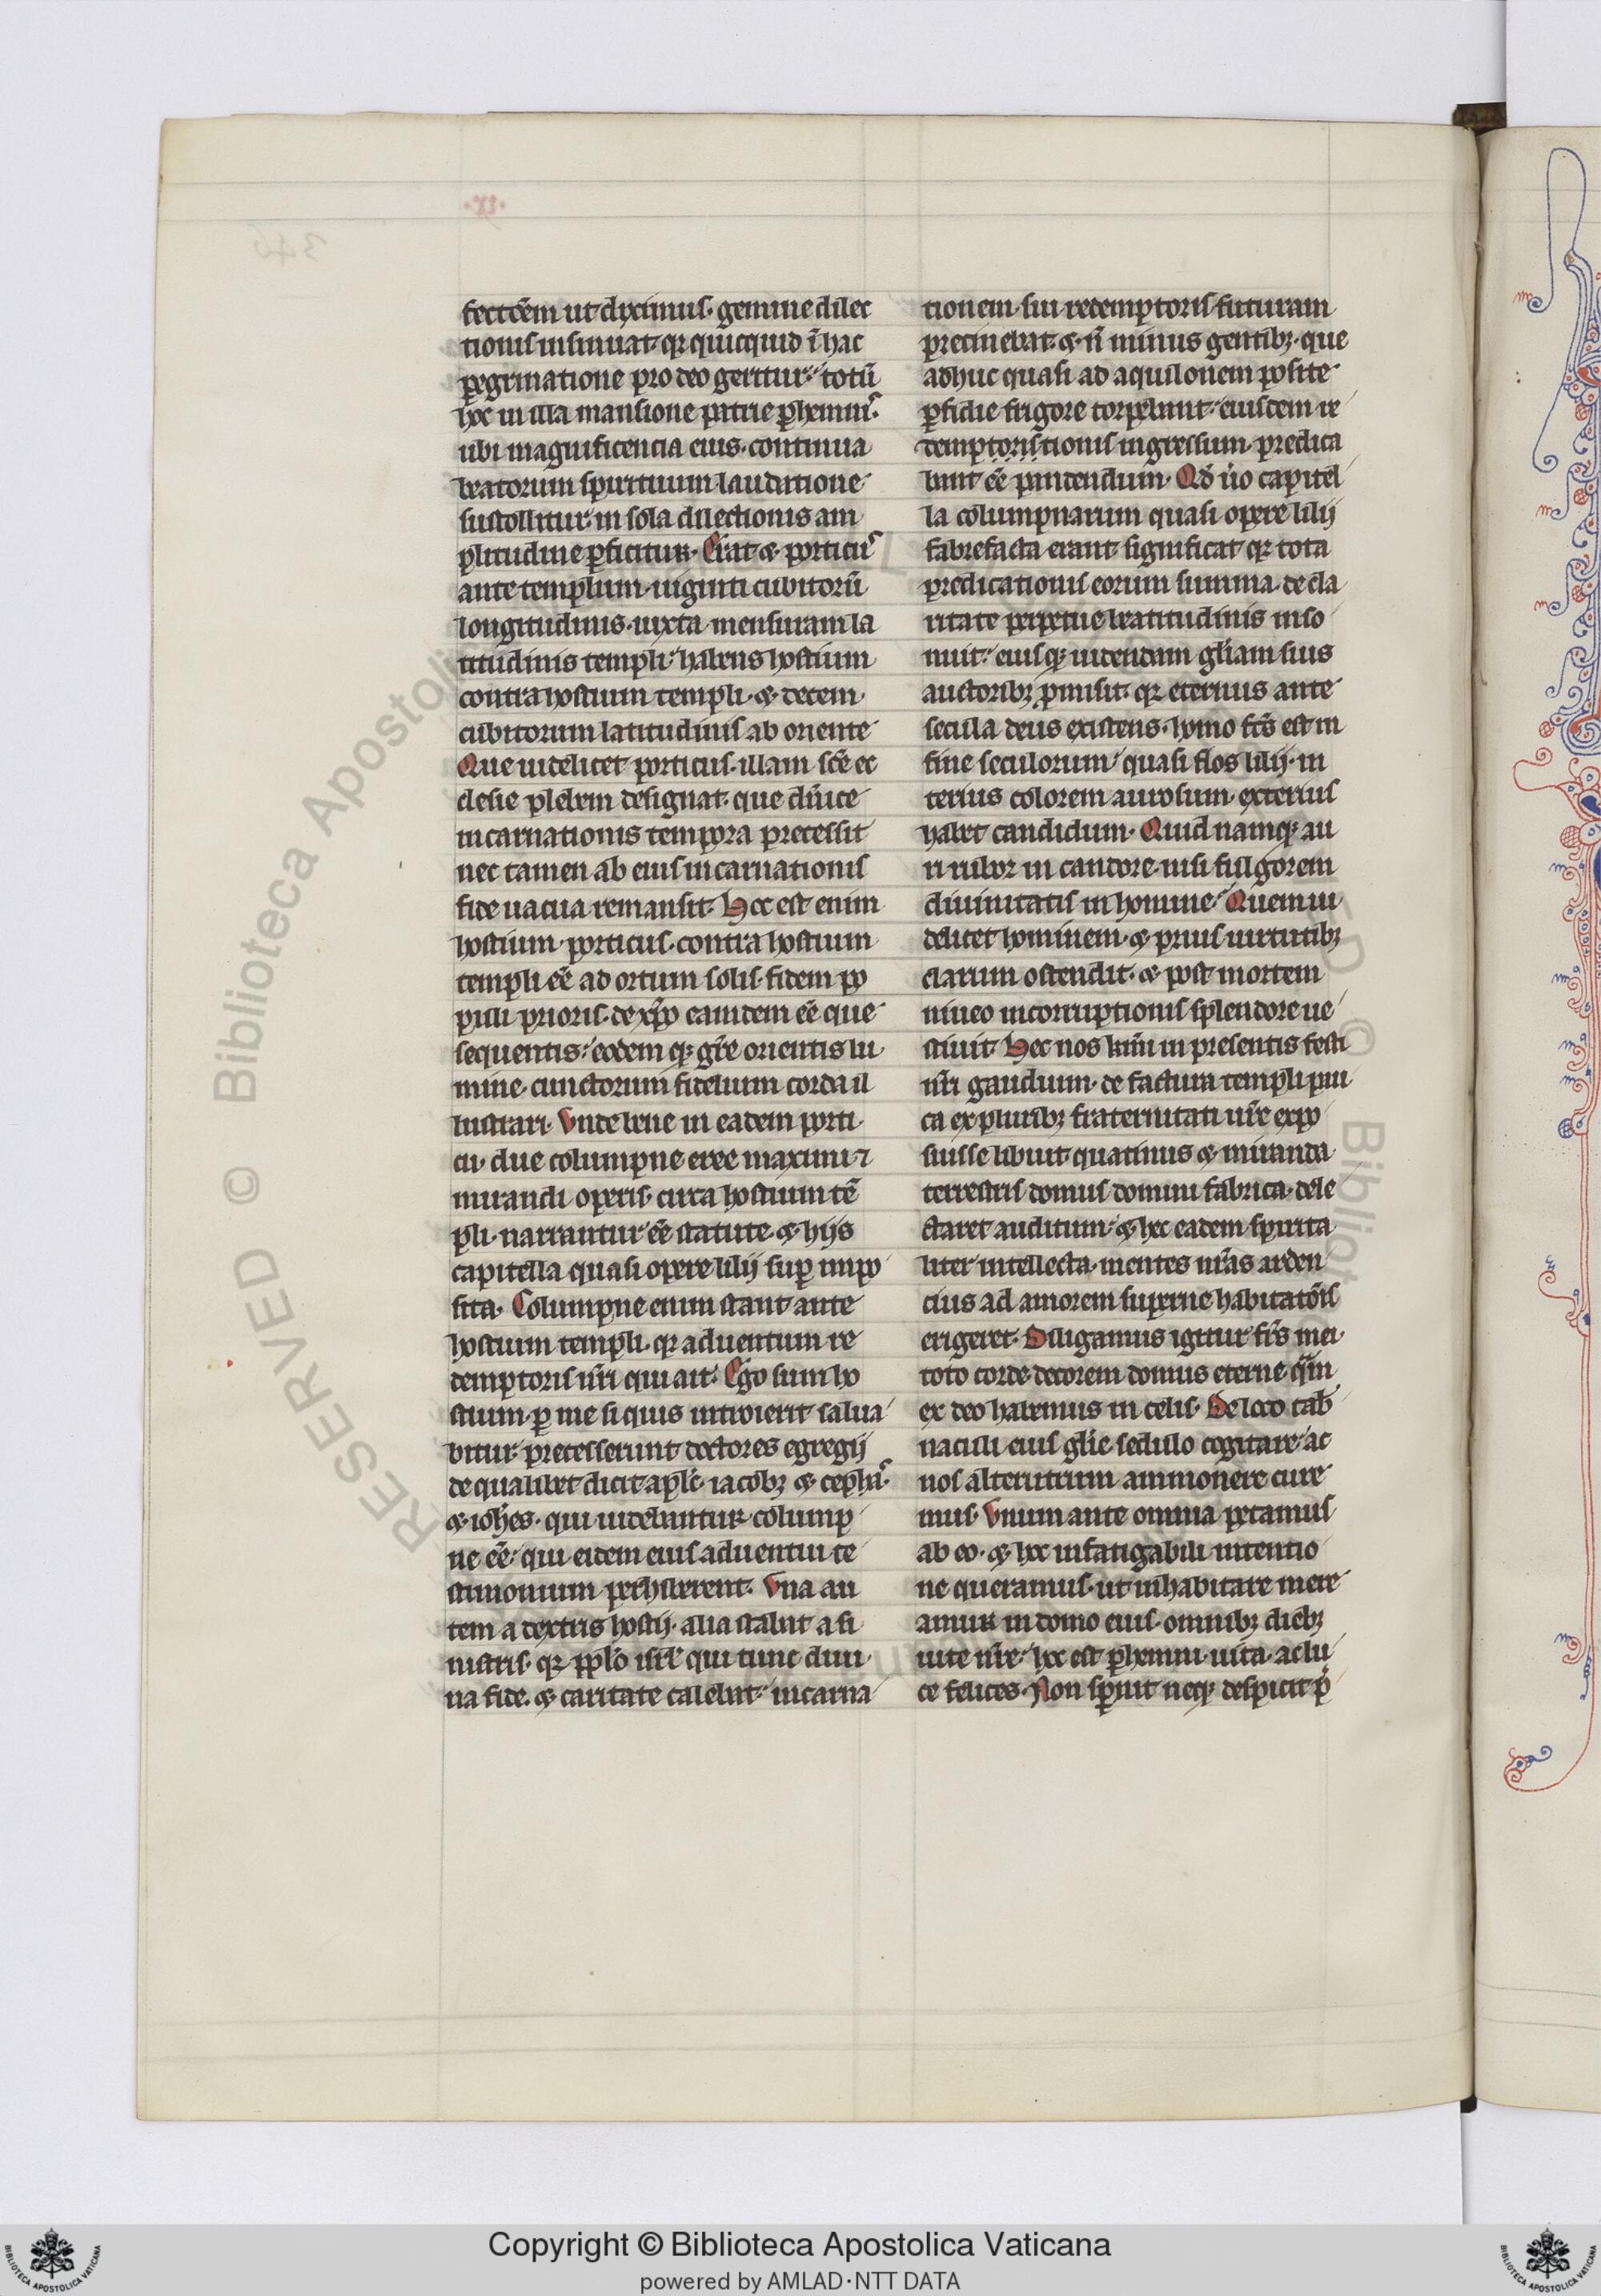 fectōem ut diximus. gemine dilec
tionis insinuat. qꝛ quicquid ī hac
ꝑegrinatione pro deo geritur. totū
hoc in illa mansione patrie ꝑhennis.
ubi magnificencia eius. continua
beatorum spirituum laudatione
sustollitur. in sola dilectionis am
plitudine ꝑficitur. Erat ⁊ porticus
ante templum. uiginti cubitorū
longitudinis. iuxta mensuram la
titudinis templi. habens hostium
contra hostium templi. ⁊ decem
cubitorum latitudinis ab oriente
Que uidelicet porticus. illam scē ec
clesie plebem designat. que dn̄ice
incarnationis tempora precessit
nec tamen ab eius incarnationis
fide uacua remansit. Hoc est enim
hostium porticus. contra hostium
templi eē ad ortum solis. fidem po
puli prioris. de xp̄o eamdem eē que
sequentis. eodem qꝫ gr̄e orientis lu
mine. cunctorum fidelium corda il
lustrari. Vnde bene in eadem porti
cu. due columpne eree maximi ⁊
mirandi operis. circa hostium tē
pli. narrantur eē statute. ⁊ hijs
capitella quasi opere lilij suꝑ impo
sita. Columpne enim stant ante
hostium templi. qꝛ aduentum re
demptoris nr̄i qui ait. Ego sum ho
stium. ꝑ me si quis introierit salua
bitur. precesserunt doctores egregij
de qualibet dicit apl̄s. iacobꝫ ⁊ cephas.
⁊ ioh̄es. qui uidebantur colump
ne eē. qui eidem eius aduentui te
stimonium perhiberent. Vna au
tem a dextris hostij. alia stabat a si
nistris. qꝛ pp̄lo isrl̄ qui tunc diui
na fide. ⁊ caritate calebat. incarna
tionem. sui redemptoris. futuram
precinebat. ⁊ n̄ minus gentibꝫ. que
adhuc quasi ad aquilonem posite
ꝑfidie frigore torpebant. eiusdem re
demptoristionis ingressum. predica
bant eē pandendum. Qd̄ u̇o capitel
la columpnarum quasi opere lilij
fabrefacta erant. significat. qꝛ tota
predicationis eorum summa. de cla
ritate perpetue beatitudinis inso
nuit. eiusqꝫ uidendam gl̄iam suis
auctoribꝫ ꝓmisit. qꝛ eternus ante
secula deus existens. homo fcs̄ est in
fine seculorum. quasi flos lilij. in
terius colorem aurosum. exterius
habet candidum. Quid namqꝫ au
ri rubor in candore. nisi fulgorem
diuinitatis in homine. Quem ui
delicet hominem. ⁊ prius uirtutibꝫ
clarum ostendit. ⁊ post mortem
niueo incorruptionis splendore ue
stiuit. Hec nos kr̄mi in presentis festi
nr̄i gaudium. de factura templi pau
ca ex pluribꝫ fraternitati ur̄e expo
suisse libuit. quatinus ⁊ miranda
terrestris domus domini fabrica. dele
ctaret auditum. ⁊ hec eadem spirita
liter intellecta. mentes nr̄as arden
cius ad amorem superne habitatōis
erigeret. Diligamus igitur frs̄ mei.
toto corde decorem domus eterne qm̄
ex deo habemus in celis. De loco tab̄
naculi eius gl̄ie. sedulo cogitare. ac
nos alterutrum ammonere cure
mus. Vnum ante omnia petamus
ab eo. ⁊ hoc infatigabili intentio
ne queramus. ut inhabitare mere
amur in domo eius. omnibꝫ diebꝫ
uite nr̄e. hoc est ꝑhenni. uita. ac lu
ce felices. Non spernit neqꝫ despicit p̄
Copyright © Biblioteca Apostolica Vaticana
powered by AMLAD·NTT DATA